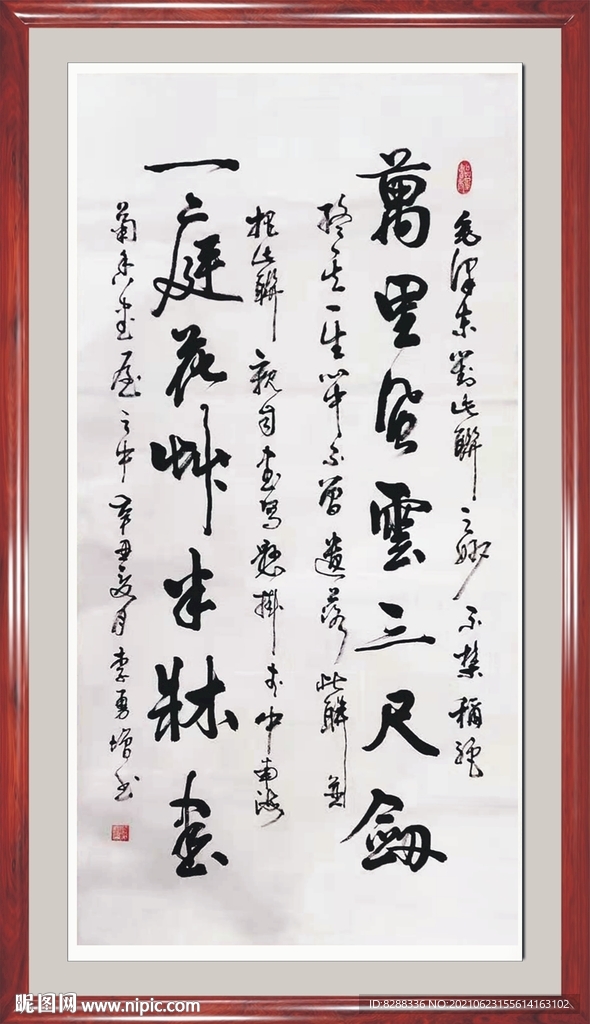 毛澤東對此聯之妙不禁稱絕
萬里風雲三尺劔
終其一生心中不曾遺落此聯並
把此聯親自書寫懸掛於中南海
一庭花艸半牀書
菊香書屋之中辛丑夏月李勇增书
昵图网 www.nipic.com
ID:8288336 NO:20210623155614163102